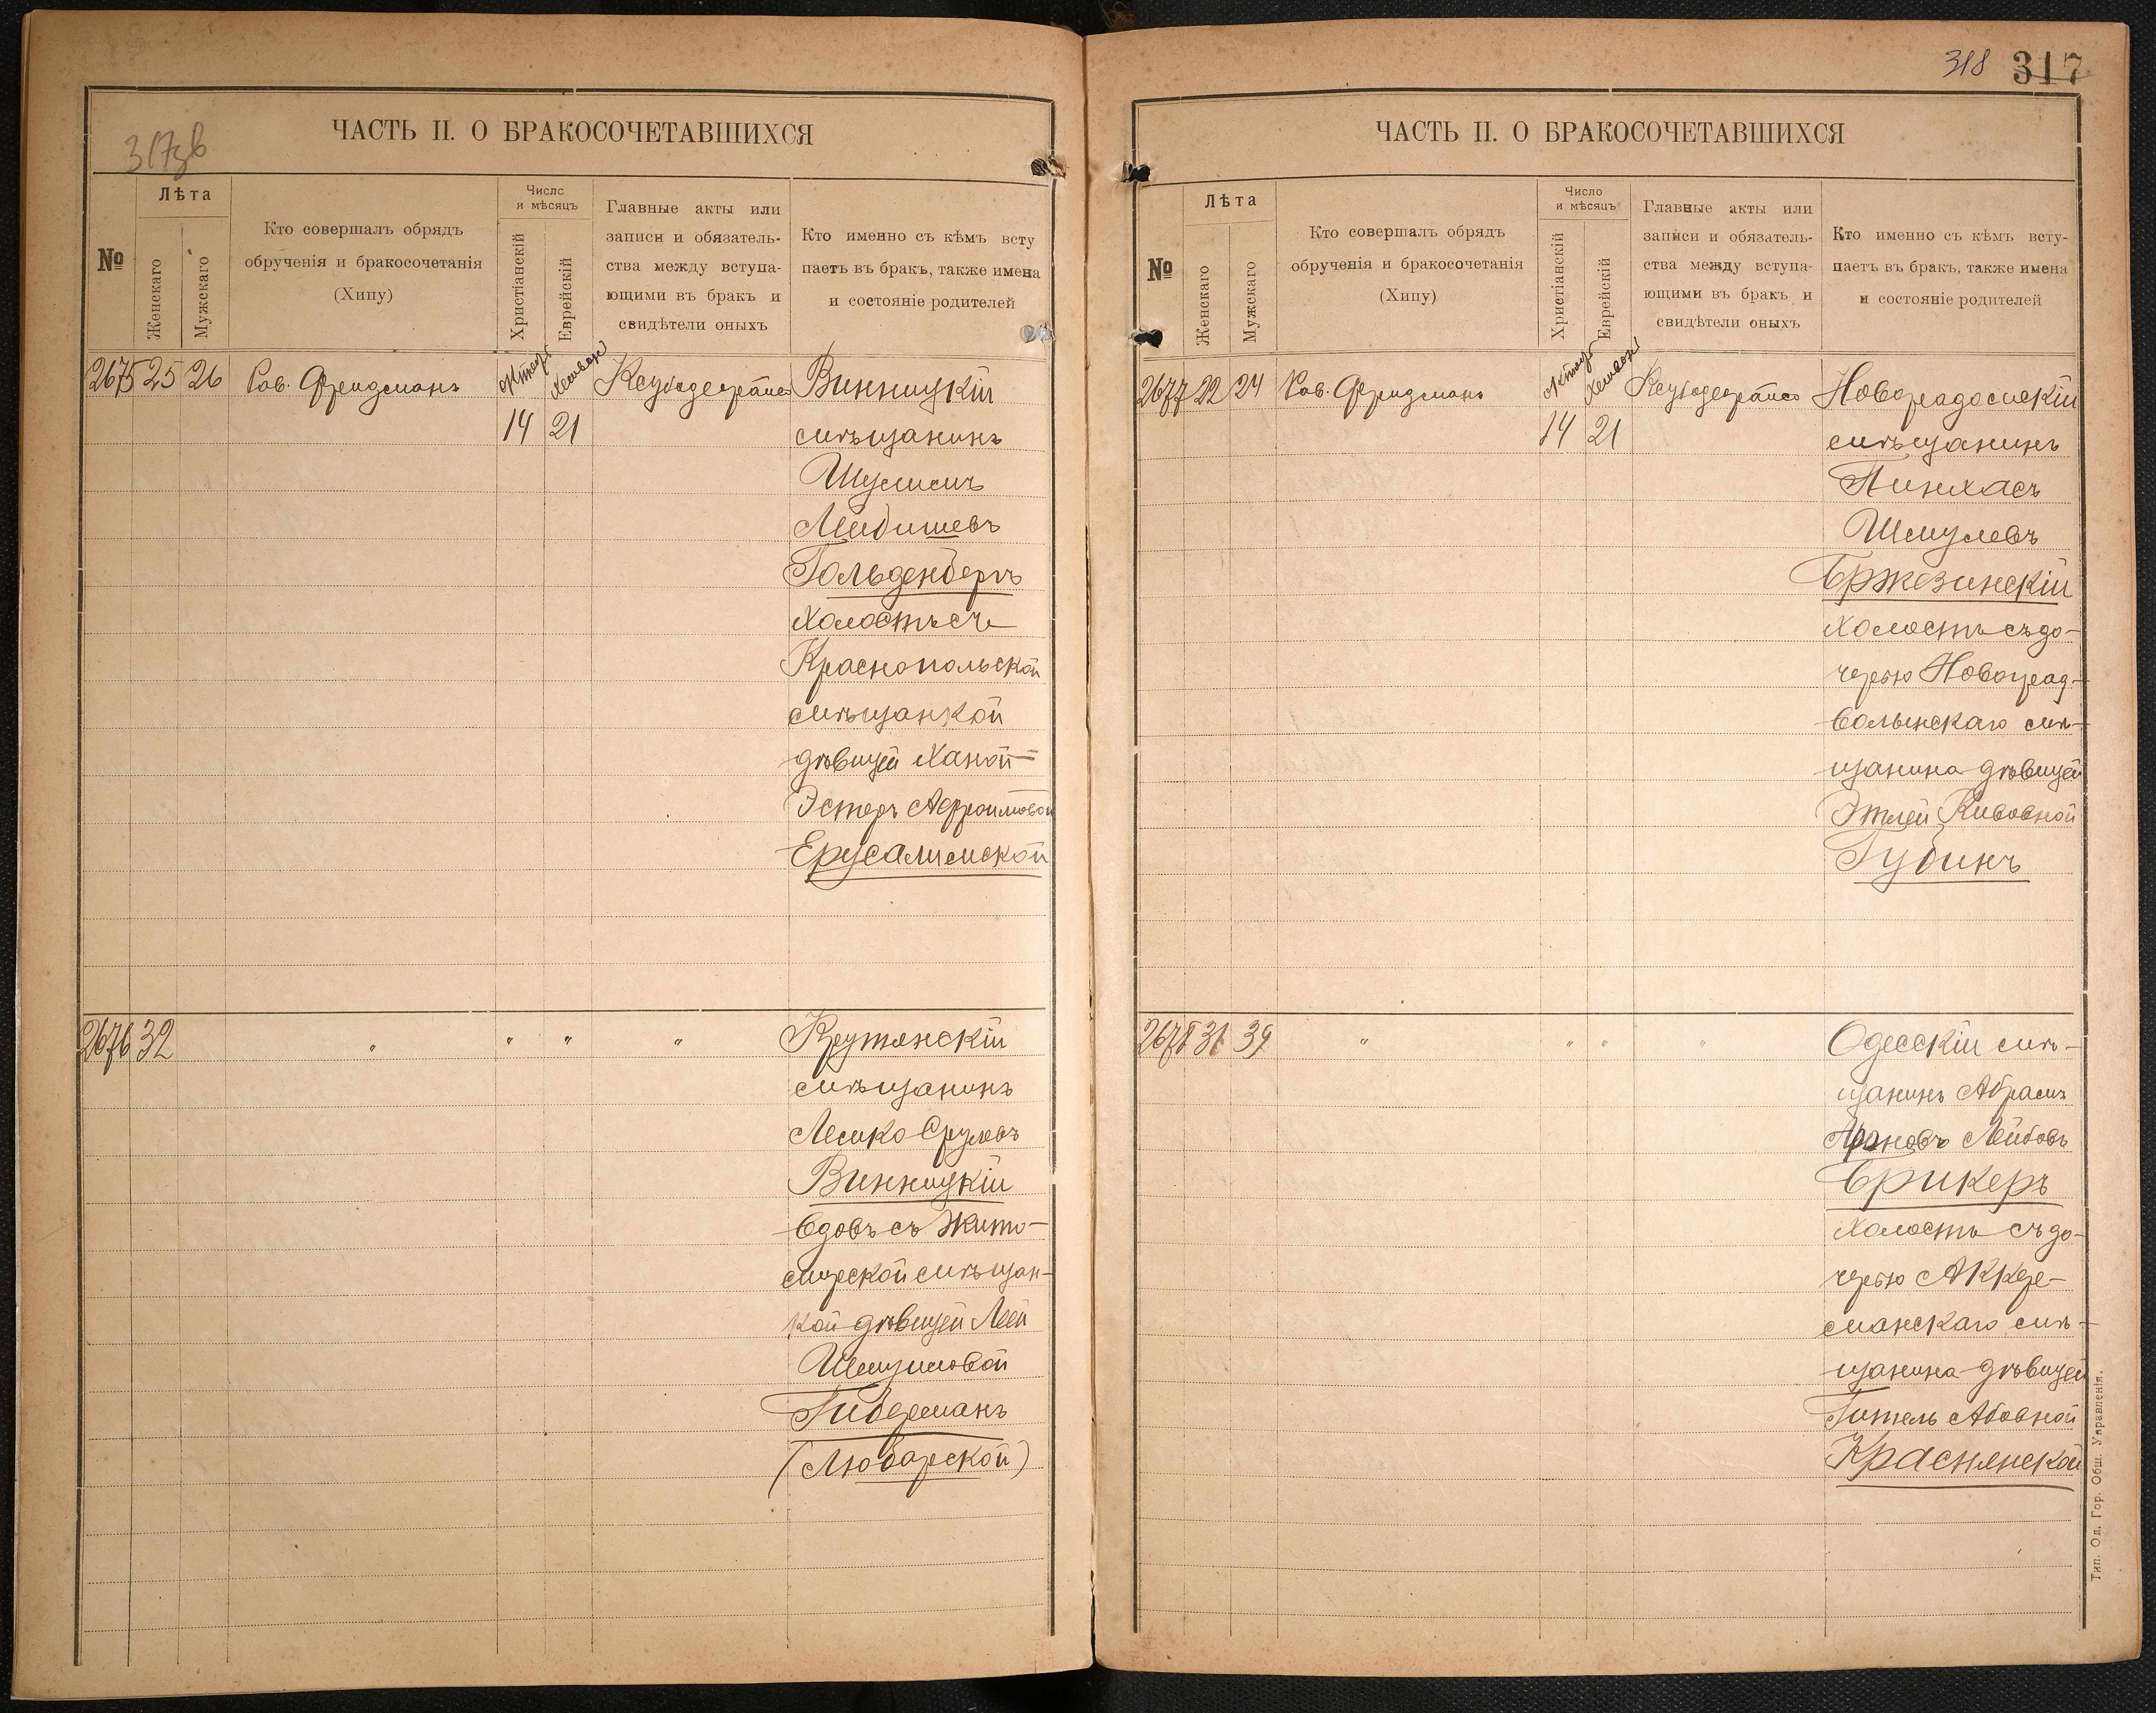 317зв
ЧАСТЬ II. О БРАКОСОЧЕТАВШИХСЯ
№
Лѣта
Женскаго
Мужскаго
Кто совершалъ обрядъ
обрученія и бракосочетанія
(Хипу)
Число
и мѣсяцъ
Христіанскій
Еврейскій
Главные акты или
записи и обязатель-
ства между вступа-
ющими въ бракъ и
свидѣтели оныхъ
Кто именно съ кѣмъ всту
паетъ въ бракъ, также имена
и состояніе родителей
2675 25 26 Рав. Фридманъ Октябр Хешван Винницкій
14 21 мѣщанинъ
Шулимъ
Лейбишевъ
Гольденбергъ
холостъ съ
Краснопольской
мѣщанкой
дѣвицей Ханой-
Эстеръ Афроимовой
Ерусалимской
2676 32 " " " " Крутянскій
мѣщанинъ
Лемко Срулевъ
Винницкій
вдовъ съ Жито-
мирской мѣщан-
кой дѣвицей Леей
Шмулиовой
Гиберманъ
(Любарской)
318 317
ЧАСТЬ II. О БРАКОСОЧЕТАВШИХСЯ
№
Лѣта
Женскаго
Мужскаго
Кто совершалъ обрядъ
обрученія и бракосочетанія
(Хипу)
Число
и мѣсяцъ
Христіанскій
Еврейскій
Главные акты или
записи и обязатель-
ства между вступа-
ющими въ бракъ и
свидѣтели оныхъ
Кто именно съ кѣмъ всту-
паетъ въ бракъ, также имена
и состояніе родителей
2677 22 24 Рав. Фридманъ Октябр Хешван Новорадомскій
14 21 мѣщанинъ
Пинхасъ
Шмулевъ
Бржезинскій
холостъ съ до-
черью Новоград-
волынскаго мѣ-
щанина дѣвицей
Этлей Кивовной
Губинъ
2678 31 39 " " " " Одесскій мѣ-
щанинъ Абрамъ
Ароновъ Лейбовъ
Брикеръ
холостъ съ до-
черью Аккер-
манскаго мѣ-
щанина дѣвицей
Гитель Абовной
Краснянской
Тип. Од. Гор. Общ. Управленія.